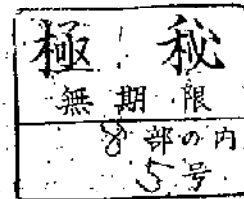 極秘
無期限
8部の内
5号